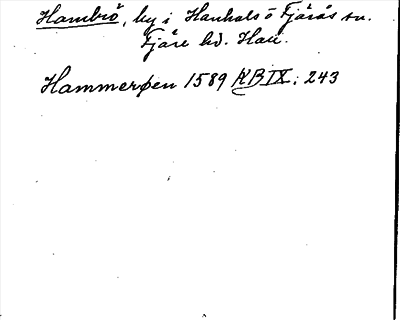 Hambrö, by i Hanhals o Fjärås sn.
Fjäre hd. Hall.
Hammerøen 1589 KB IX: 243